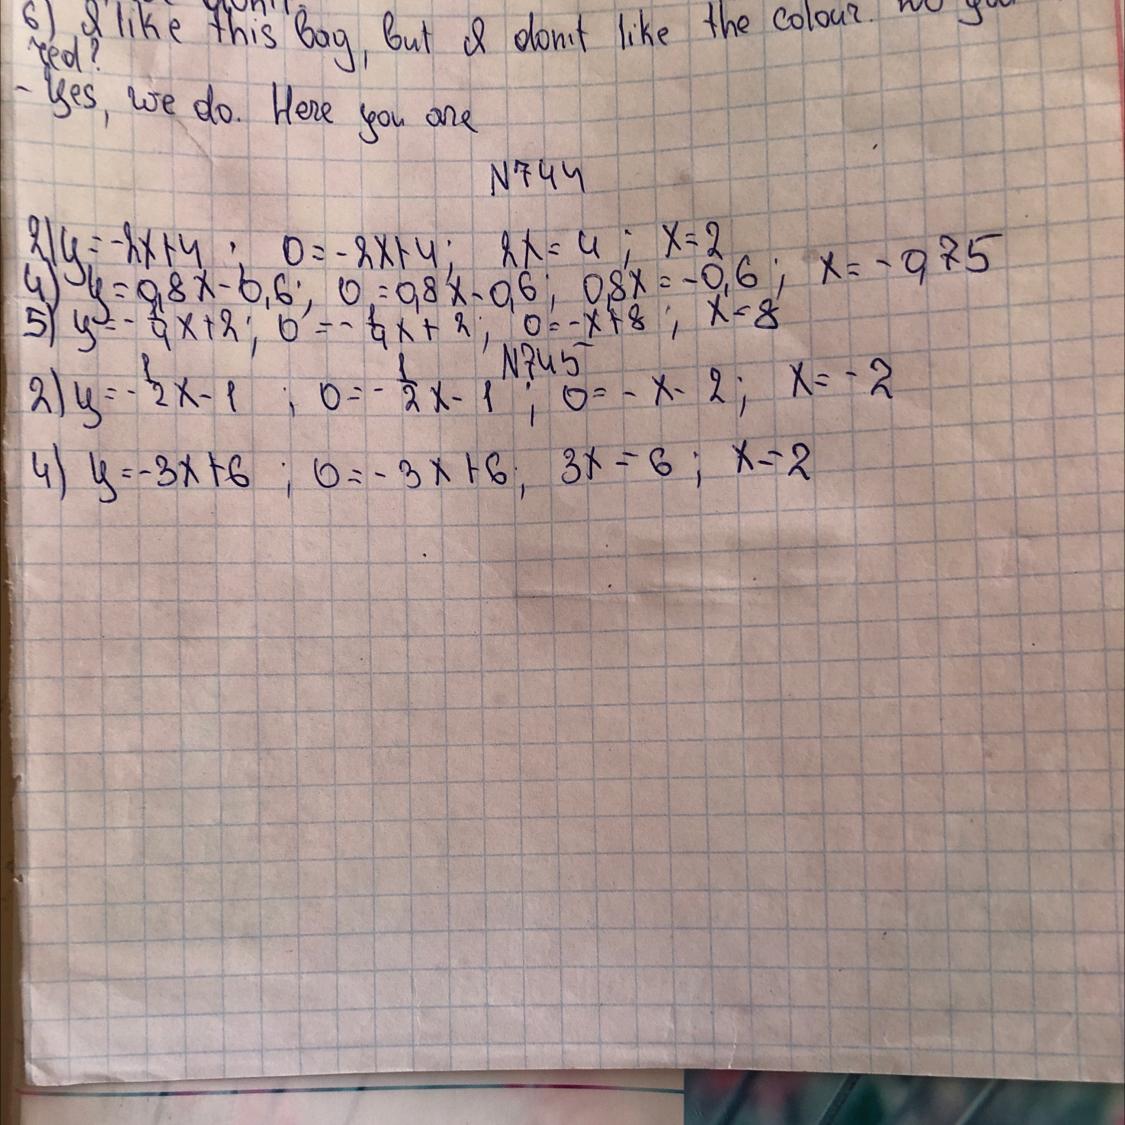 6) I like this bag, but I don't like the colour. Do you
red?
- Yes, we do. Here you are
N744
2) y=-2x+4; 0=-2x+4; 2x=4; x=2
4) y=0,8x-0,6; 0=0,8x-0,6; 0,8x=-0,6; x=-0,75
5) y=-1/4x+2; 0=-1/4x+2; 0=-x+8; x=8
N745
2) y=-1/2x-1; 0=-1/2x-1; 0=-x-2; x=-2
4) y=-3x+6; 0=-3x+6; 3x=6; x=2